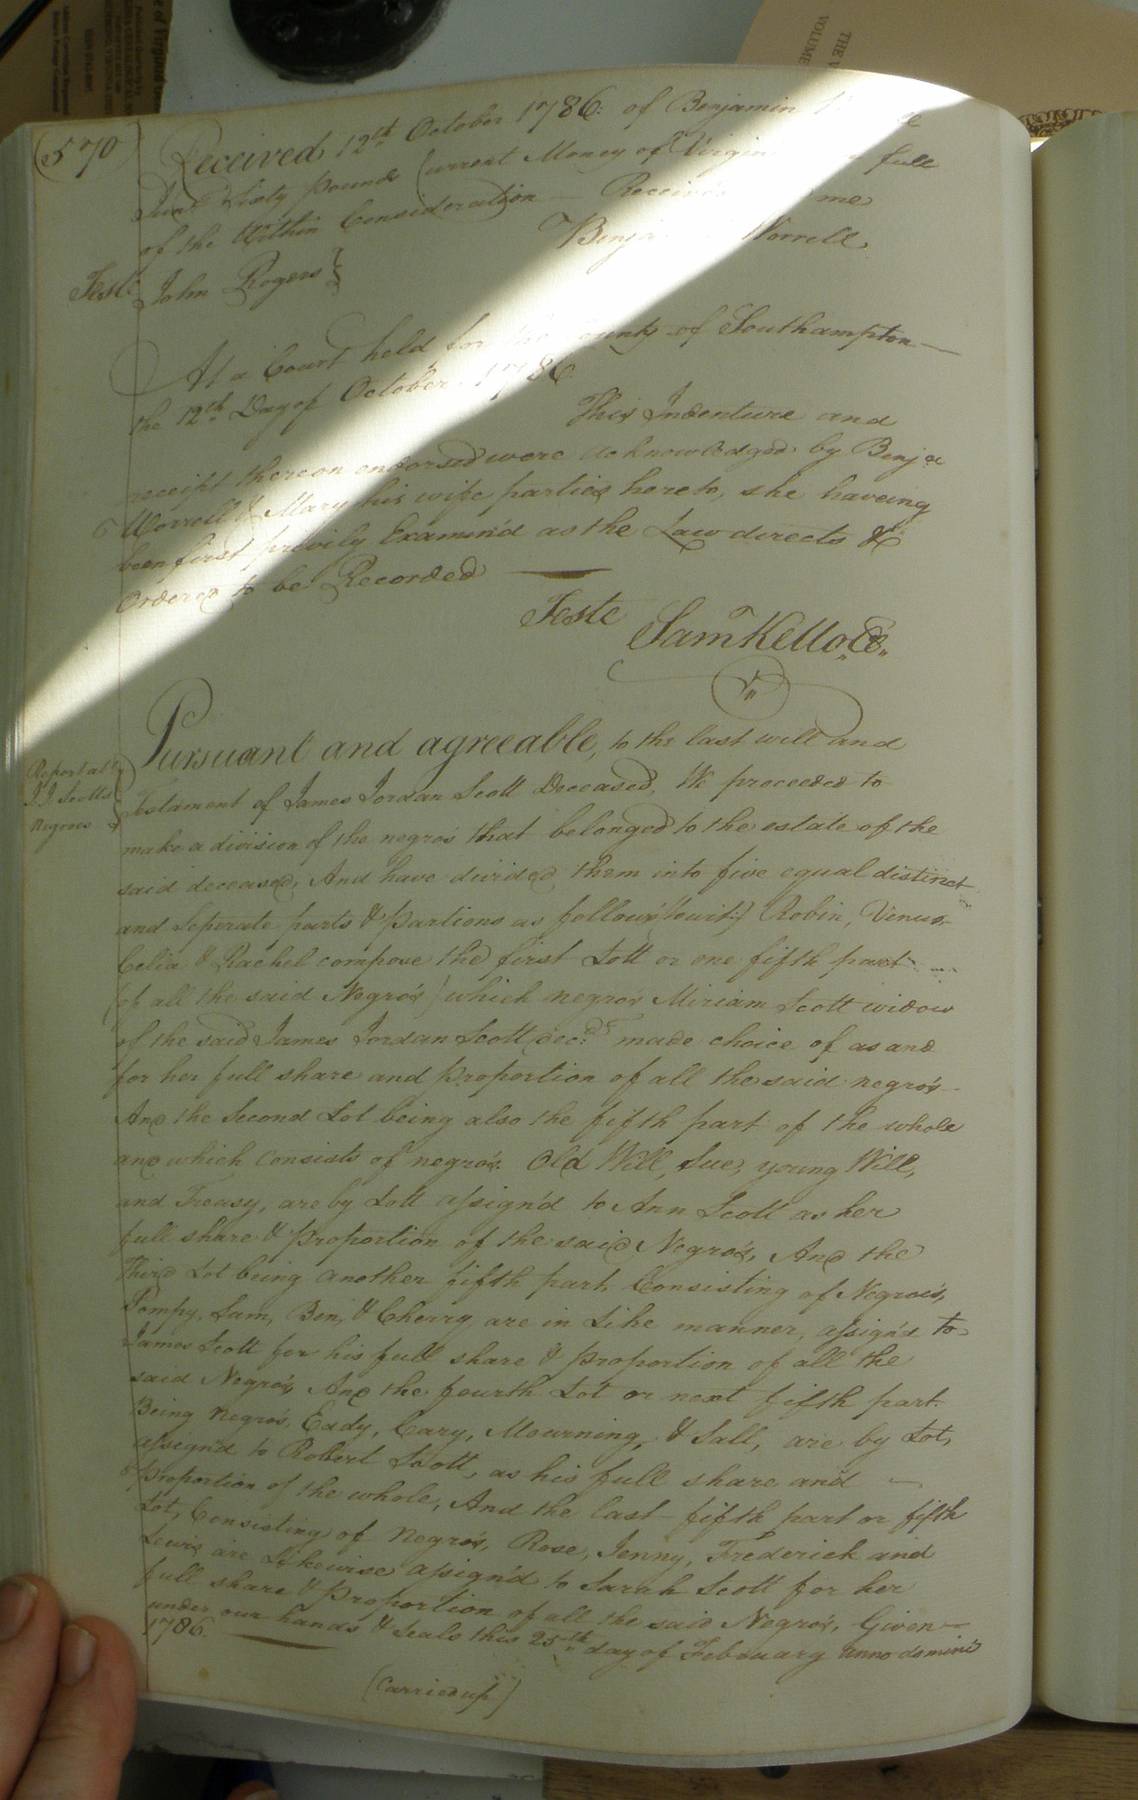 (570)
Received 12th October 1786: of Benjamin
Junr Sixty Pounds Current Money of Virgin full
of the Within Consideration — Received me
Benja Worrell
Teste John Rogers }
At a Court held for the County of Southampton —
the 12th Day of October 1786
This Indenture and
receipt thereon endorsed were acknowledged by Benja
Worrell & Mary his wife parties hereto, she haveing
been first privily Examin'd as the Law directs &
Ordered to be Recorded
Teste Saml Kello, CC,,
Pursuant and agreeable, to the last will and
Report allt J. J. Scotts negroes
Testament of James Jordan Scott Deceased, We proceeded to
make a division of the negro's that belonged to the estate of the
said deceased, And have divided them into five equal distinct
and Seperate parts & Partions as follows (towit:) Robin, Venus,
Celia & Rachel compose the first Lott or one fifth part
(of all the said Negro's) which negro's Miriam Scott widow
of the said James Jordan Scott decd made choice of as and
for her full share and proportion of all the said negro's —
And the Second Lot being also the fifth part of the whole
and which Consists of negro's. Old Will, Sue, young Will,
and Treasy, are by Lott assign'd to Ann Scott as her
full share & Proportion of the said Negro's, And the
Third Lot being another fifth part, Consisting of Negroe's,
Pompy, Sam, Ben, & Cherry are in Like manner, assign'd to
James Scott for his full share & proportion of all the
said Negro's, And the fourth Lot or next fifth part
Being negro's, Eady, Cary, Mourning, & Sall, are by Lot,
assign'd to Robert Scott, as his full share and —
Proportion of the whole, And the last fifth part or fifth
Lot, Consisting of Negro's, Rose, Jenny, Frederick and
Lewis are Likewise assign'd to Sarah Scott for her
full share & Proportion of all the said Negro's, Given —
under our hands & Seals this 25th day of February anno domini
1786.
(Carried up)